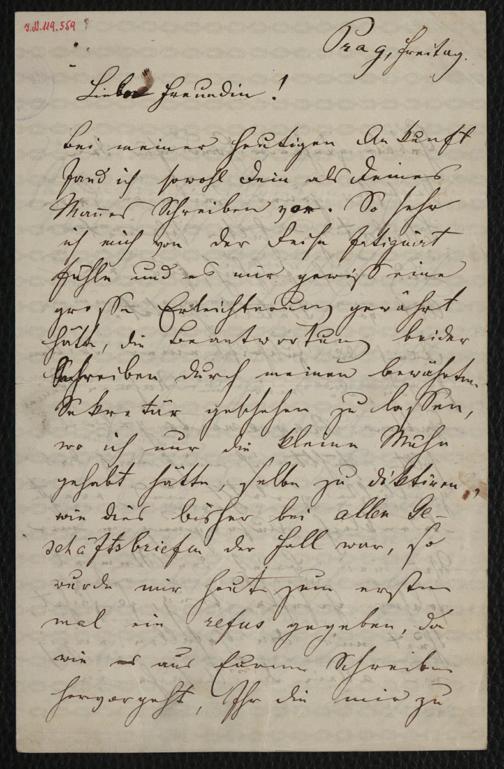 I.N.119.559
Prag, Freitag.
Liebe Freundin!
Bei meiner heutigen Ankunft
fand ich sowohl Dein als Deines
Mannes Schreiben vor. So sehr
ich mich von der Reise fatiguirt
fühle und es mir gewiss eine
grosse Erleichterung gewährt
hätte, die Beantwortung beider
Schreiben durch meinen bewährten
Sekretär geschehen zu lassen,
wo ich nur die kleine Mühe
gehabt hätte, selbe zu diktiren,
wie dies bisher bei allen Ge-
schäftsbriefen der Fall war, so
wurde mir heute zum ersten
mal ein refus gegeben, da
wie es aus Eurem Schreiben
hervorgeht, Ihr die mir zu